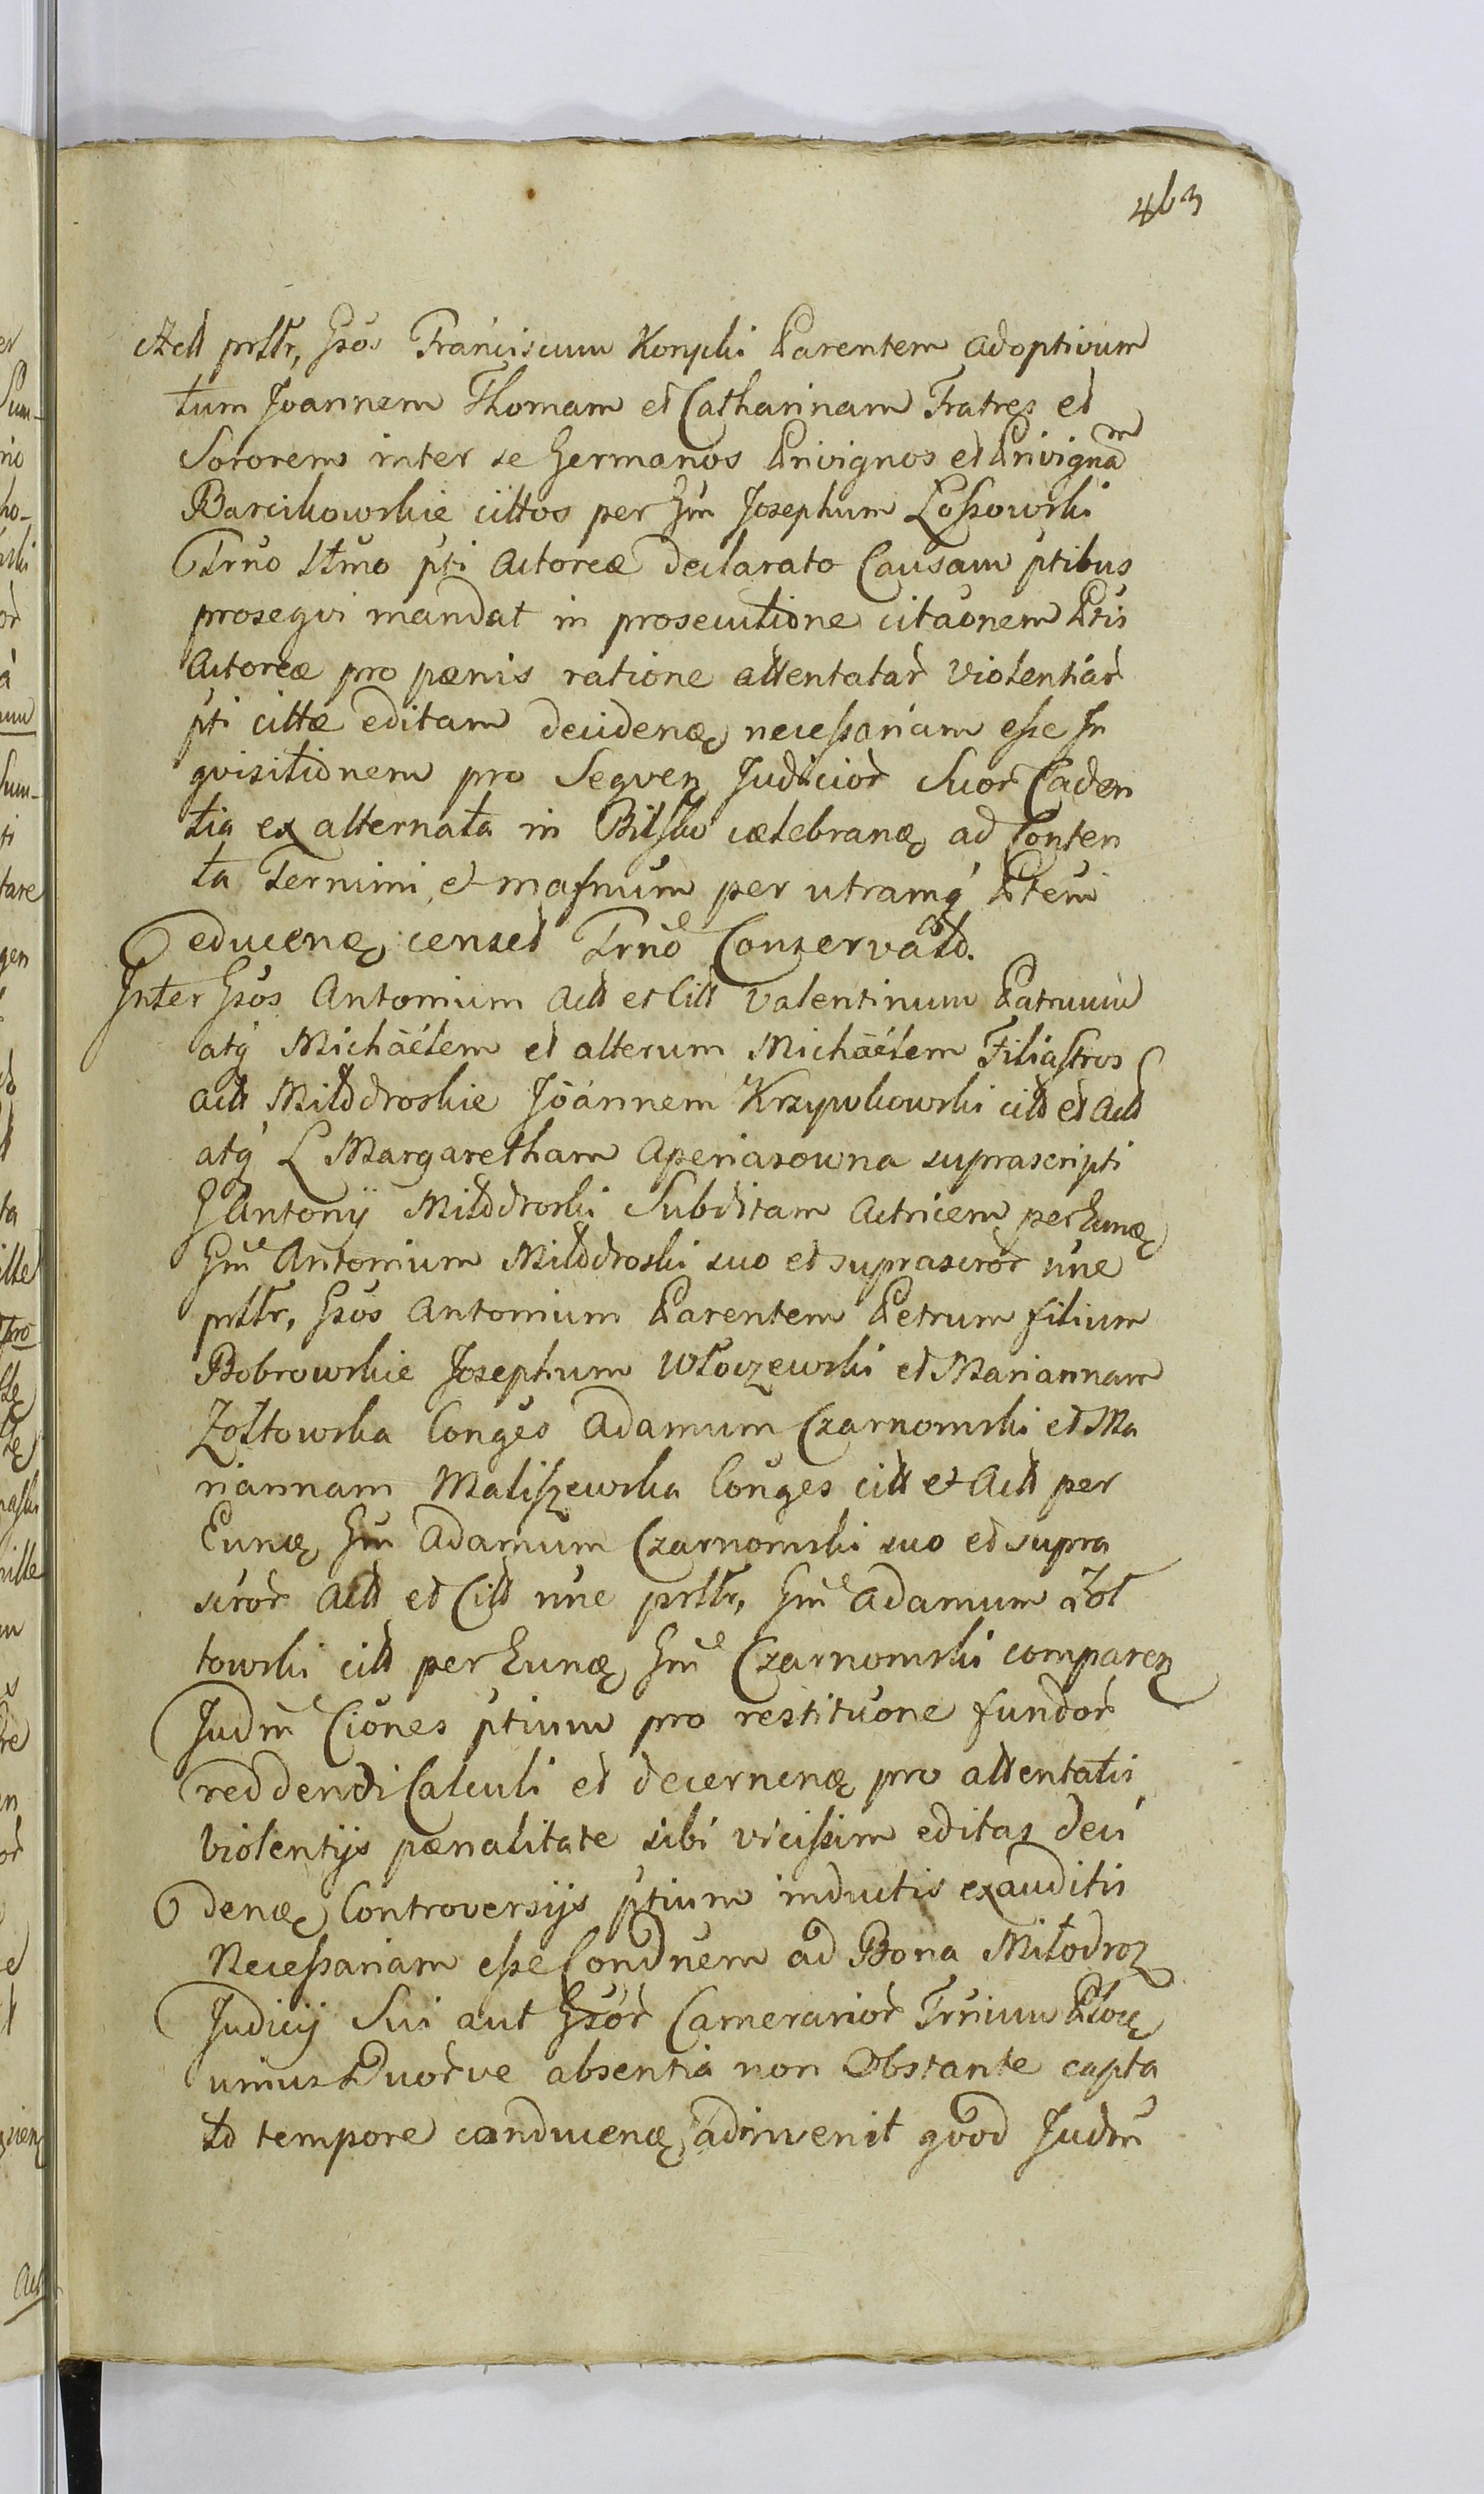 463
Actt prttr, Gsos Franciscum Konycki Parentem Adoptivum
tum Joannem Thomam et Catharinam Fratres et
Sororem inter se Germanos Privignos et Privignam
Barcikowskie cittos per Gm Josephum Lossowski
Trno Ittmo pti Actoreæ declarato Causam ptibus
proseqvi mandat in prosecutione citaonem Ptis
Actoreæ pro pænis ratione attentatar violentiar
pti cittæ editam decidenæ necessariam esse In
qvisitionem pro Seqven Judicior Suor Caden
tia ex alternata in Bilsko cælebranæ ad Conten
ta Termini et per utramq Ptem
educenæ censet Trno Conservato.
Inter Gsos Antonium Actt et Citt Valentinum Patruum
atq Michäelem et alterum Michäelem Filiastros
actt Miłodroskie Joannem Krzywkowski citt et Actt
atq L Margaretham suprascripti
G Antonij Miłodroski Subditam Actricem per Eunæ
Gm Antonium Miłodroski suo et suprascror nne
prttr, Gsos Antonium Parentem Petrum filium
Bobrowskie Josephum Włoczewski et Mariannam
Zołtowska Conges Adamum Czarnomski et Ma
riannam Maliszewska Conges citt et Actt per
Eunæ Gm Adamum Czarnomski suo et supra
scror Actt et Citt nne prttr, Gm Adamum Żoł
towski citt per Eunæ Gm Czarnomski comparen
Judm Ciones ptium pro restituone fundor
reddendi Calculi et decernenæ pro attentatis
violentijs pænalitate sibi vicissim editas deci
denæ Controversijs ptium inductis exauditis
Necessariam esse Condnem ad Bona Miłodroz
Judicij Sui aut Gsor Camerarior Trnium Płoce
unius Duorve absentia non Obstante capta
to tempore conducenæ adinvenit qvod Judm